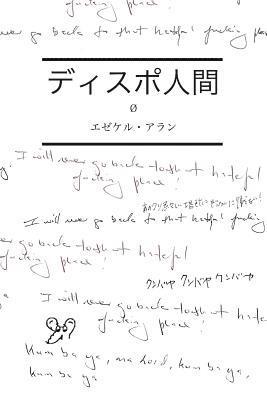 fucking place!
never go back to that hateful fucking
ディスポ人間
Ø
エゼケル・アラン
I will never go back to that hateful
fucking place!
never go back to that hateful fucking
go back to that hateful
fucking place!
クンバヤ クンバヤ クンバヤ
I will never go back to that hateful
fucking place!
Kum ba ya, ma lord, kum ba ya,
kum ba ya